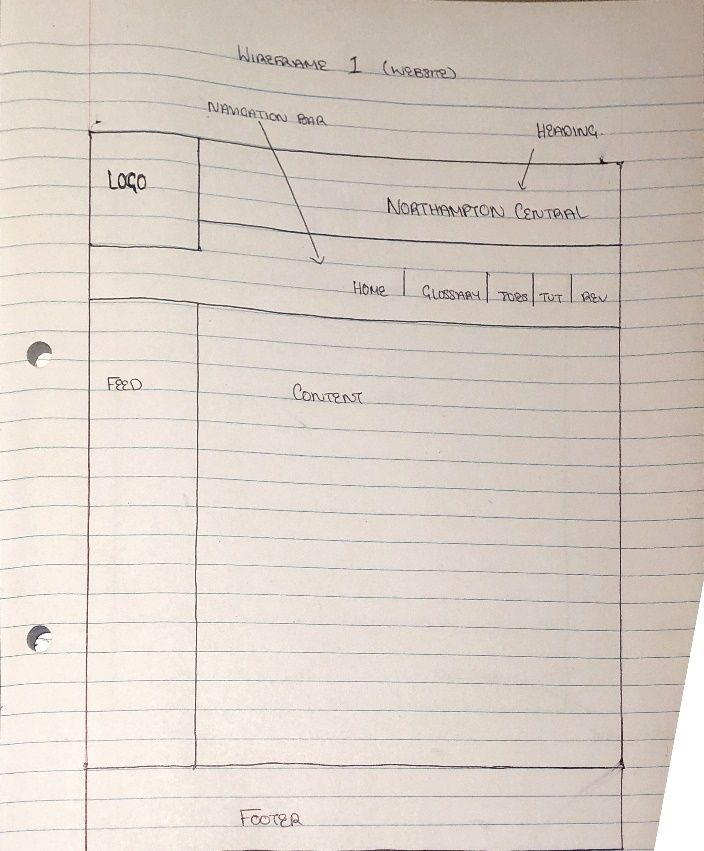 WIREFRAME 1 (WEBSITE)
NAVIGATION BAR
HEADING.
LOGO
NORTHAMPTON CENTRAL
HOME | GLOSSARY | JOBS | TUT | REV
FEED
CONTENT
FOOTER